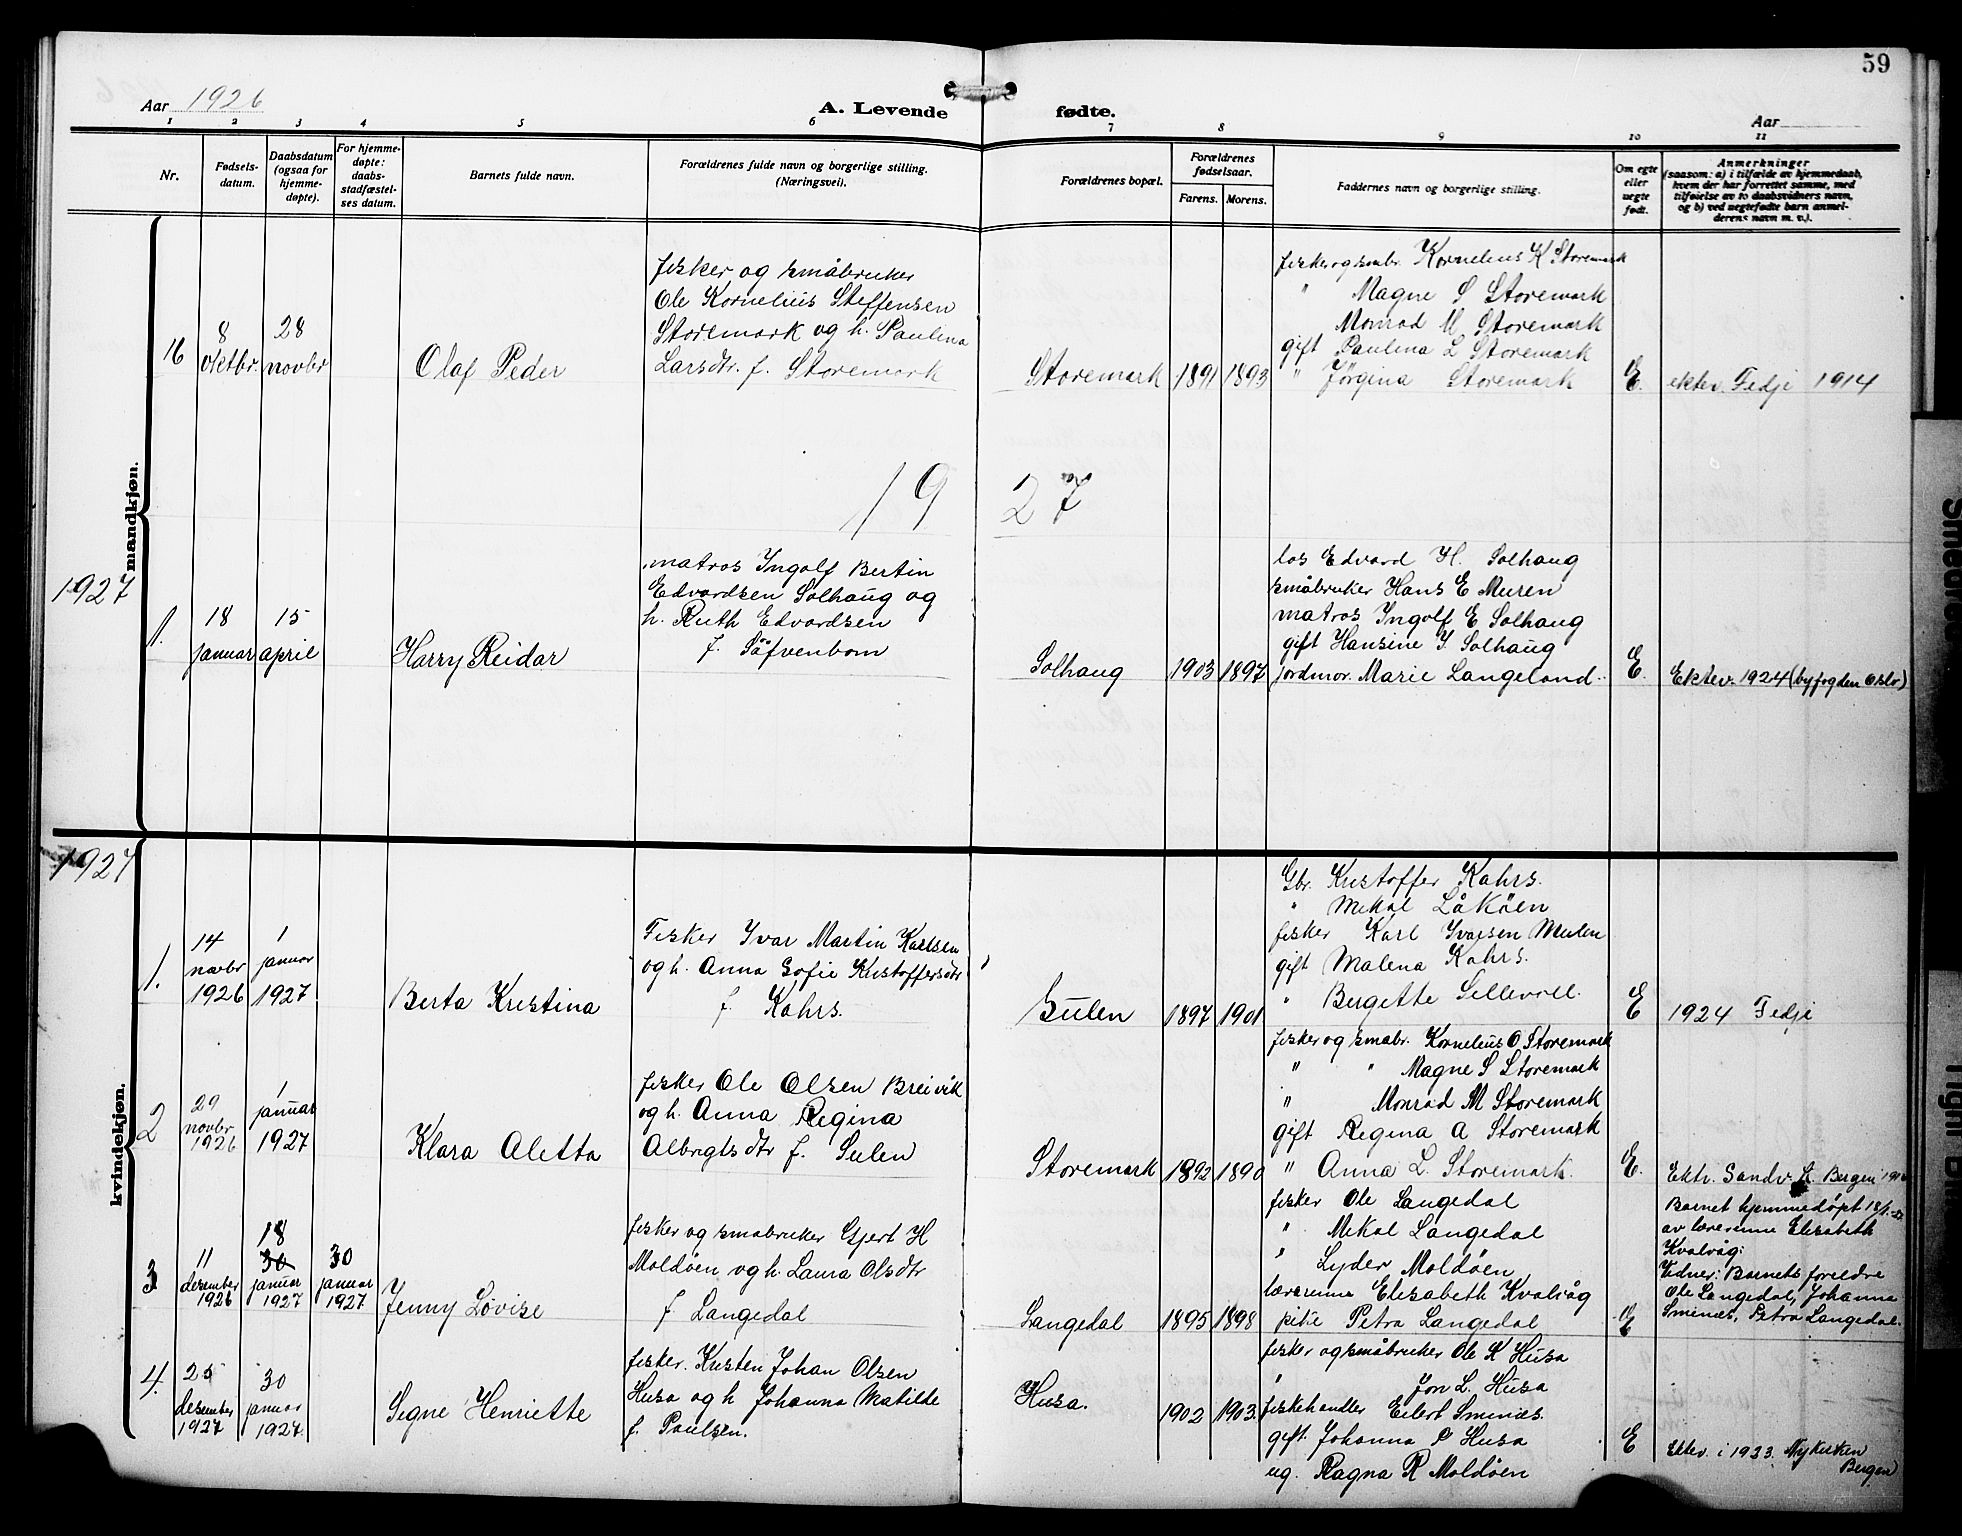 59
Aar 1926
A. Levende fødte.
Aar
1 2 3 4 5 6 7 8 9 10 11
Nr.
Fødsels-
datum.
Daabsdatum
(ogsaa for
hjemme-
døpte).
For hjemme-
døpte:
daabs-
stadfæstel-
ses datum.
Barnets fulde navn.
Forældrenes fulde navn og borgerlige stilling.
(Næringsvei).
Forældrenes bopæl.
Forældrenes
fødselsaar.
Farens. Morens.
Faddernes navn og borgerlige stilling.
Om egte
eller
uegte
født.
Anmerkninger
(saasom: a) i tilfælde av hjemmedaab,
hvem der har forrettet samme, med
tilføielse av to daabsvidners navn,
og b) ved uegtefødte barn anmel-
derens navn m. v.).
mandkjøn.
16
8
oktbr.
28
novbr
Olaf Peder
fisker og småbruker
Ole Kornelius Steffensen
Storemark og h. Paulina
Larsdtr. f. Storemark
Storemark
1891
1893
fisker og smbr. Kornelius K Storemark
" Magne S Storemark
Monrad M Storemark
gift Paulina L Storemark
" Jörgina Storemark
E.
ektev. Fedje 1914
19 27
1927
1.
18
januar
15
april
Harry Reidar
matros Ingolf Bertin
Edvardsen Solhaug og
h. Ruth Edvardsen
f. Säfvenbom
Solhaug
1903
1897
los Edvard H. Solhaug
småbruker Hans E Muren
matros Ingolf E Solhaug
gift Hansine I Solhaug
jordmor. Marie Langeland.
E.
Ektev. 1924 (byfogden Oslo)
kvindekjøn.
1927
1.
14
novbr
1926
1
januar
1927
Berta Kristina
Fisker Ivar Martin Karlsen
og h. Anna Sofie Kristoffersdtr
f. Kahrs.
Sulen
1897
1901
Gbr. Kristoffer Kahrs.
" Mikal Låköen
fisker Karl Ivarsen Mulen
gift Malena Kahrs.
" Bergitte Sellevoll.
E
1924 Fedje
2
29
novbr
1926
1
januar
1927
Klara Aletta
fisker Ole Olsen Breivik
og h. Anna Regina
Albrigtsdtr f. Sulen
Storemark
1892
1890
fisker og småbr. Kornelius O Storemark
" " Magne S Storemark
" Monrad M Storemark
gift Regina A Storemark
" Anna L. Storemark.
E.
Ektv. Sandv. k. Bergen
3
11
desember
1926
18
30
januar
1927
30
januar
1927
Jenny Lovise
fisker og småbruker Gjert H
Moldöen og h. Laura Olsdtr
f Langedal
Langedal
1895
1898
fisker Ole Langedal
" Mikal Langedal
" Lyder Moldöen
lærerinne Elisabeth Kvalvåg
pike Petra Langedal
E
Barnet hjemmedöpt 18/1-27
av lærerinne Elisabeth
Kvalvåg.
Vidner: Barnets foreldre
Ole Langedal, Johanna
Sminæs, Petra Langedal.
4.
25
desember
1927
30
januar
1927.
Signe Henriette
fisker. Kristen Johan Olsen
Husa og h Johanna Matilde
f. Paulsen.
Husa.
1902
1903.
fisker og småbruker Ole K Husa
" Jon L. Husa
fiskehandler Eilert Sminæs.
gift. Johanna P Husa
ug. Ragna R Moldöen
E
Ektev. i 1923. Nykirken
Bergen